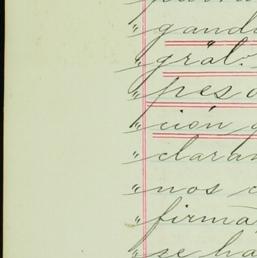 " gand
" gral.
" pes
" ción
" claran
" nos
" firma
" se ha